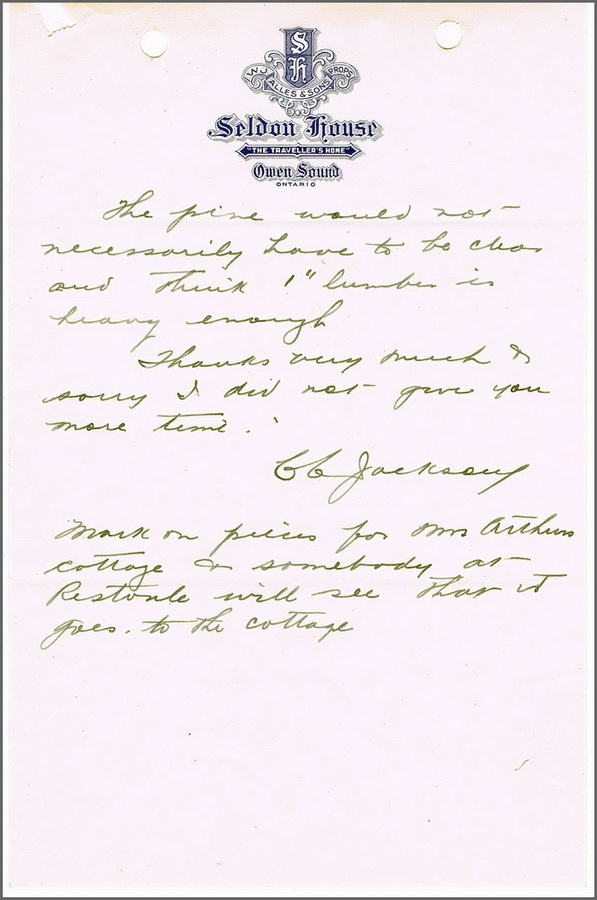 S
H
W.J. ALLES & SONS PROPS.
Seldon House
"THE TRAVELLER'S HOME"
Owen Sound
ONTARIO
The pine would not
necessarily have to be clear
and think 1" lumber is
heavy enough
Thanks very much &
sorry I did not give you
more time.
CC Jackson
Mark on pieces for Mrs Arthurs
cottage & somebody at
Restoule will see that it
goes to the cottage